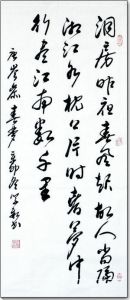 洞房昨夜春风起故人尚隔
湘江水枕上片时春梦中
行尽江南数千里
唐岑参春梦辛卯冬